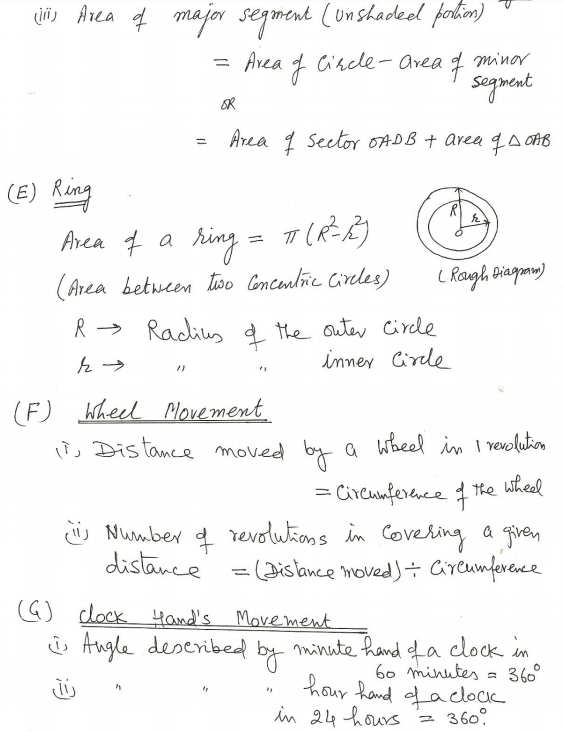 (iii) Area of major segment (Unshaded portion)
= Area of Circle - area of minor segment
OR
= Area of sector OADB + area of △ OAB
(E) Ring
Area of a ring = π (R²-r²)
R r O
(Area between two Concentric Circles)
(Rough Diagram)
R → Radius of the outer circle
r → " " inner circle
(F) Wheel Movement
(i) Distance moved by a wheel in 1 revolution
= Circumference of the wheel
(ii) Number of revolutions in Covering a given
distance = (Distance moved) ÷ Circumference
(G) Clock Hand's Movement
(i) Angle described by minute hand of a clock in
60 minutes = 360°
(ii) " " " hour hand of a clock
in 24 hours = 360°.